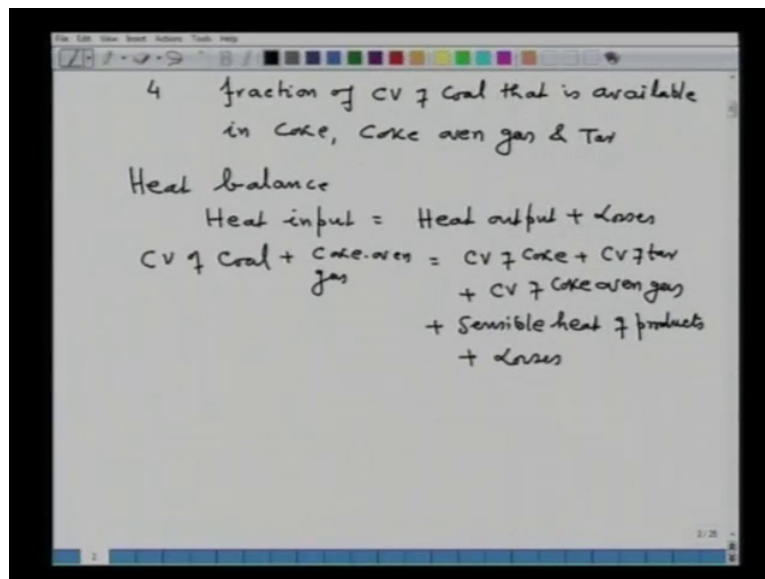 File Edit View Insert Actions Tools Help
4 fraction of CV of Coal that is available
in Coke, Coke oven gas & Tar
Heat balance
Heat input = Heat output + Losses
CV of Coal + Coke-oven = CV of Coke + CV of tar
gas + CV of Coke oven gas
+ Sensible heat of products
+ Losses
2